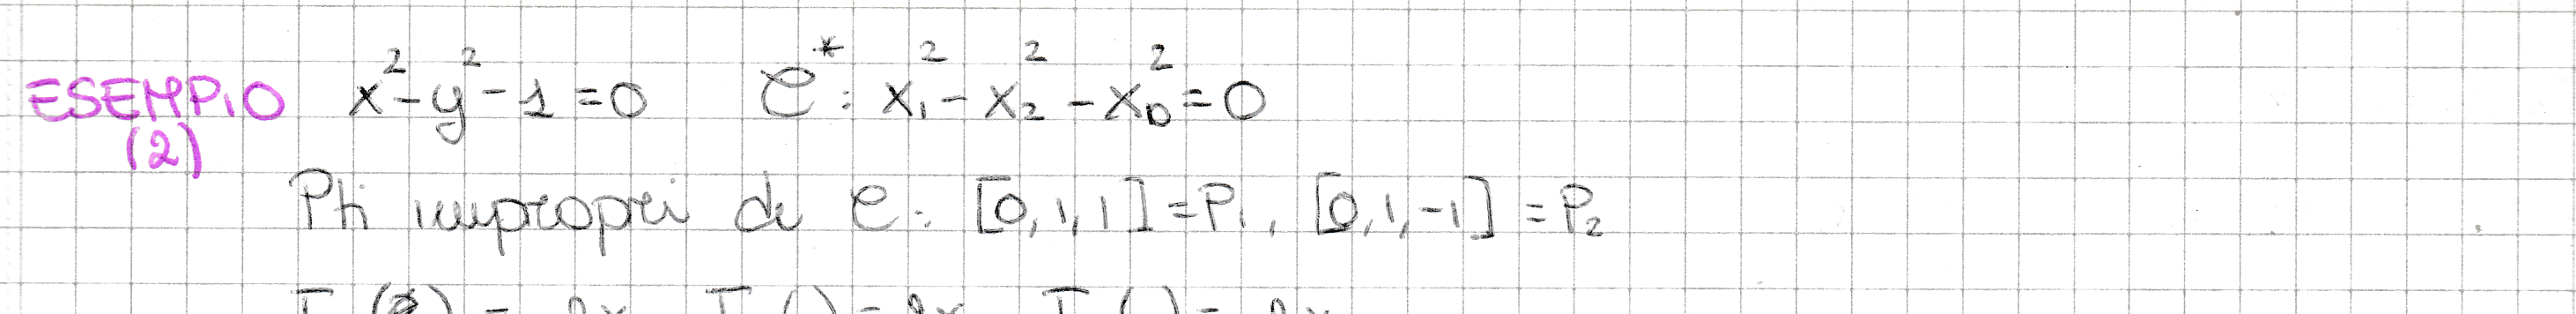 ESEMPIO x² - y² - 1 = 0 C*: x₁² - x₂² - x₀² = 0
(2)
Pti impropri di C: [0,1,1] = P₁, [0,1,-1] = P₂